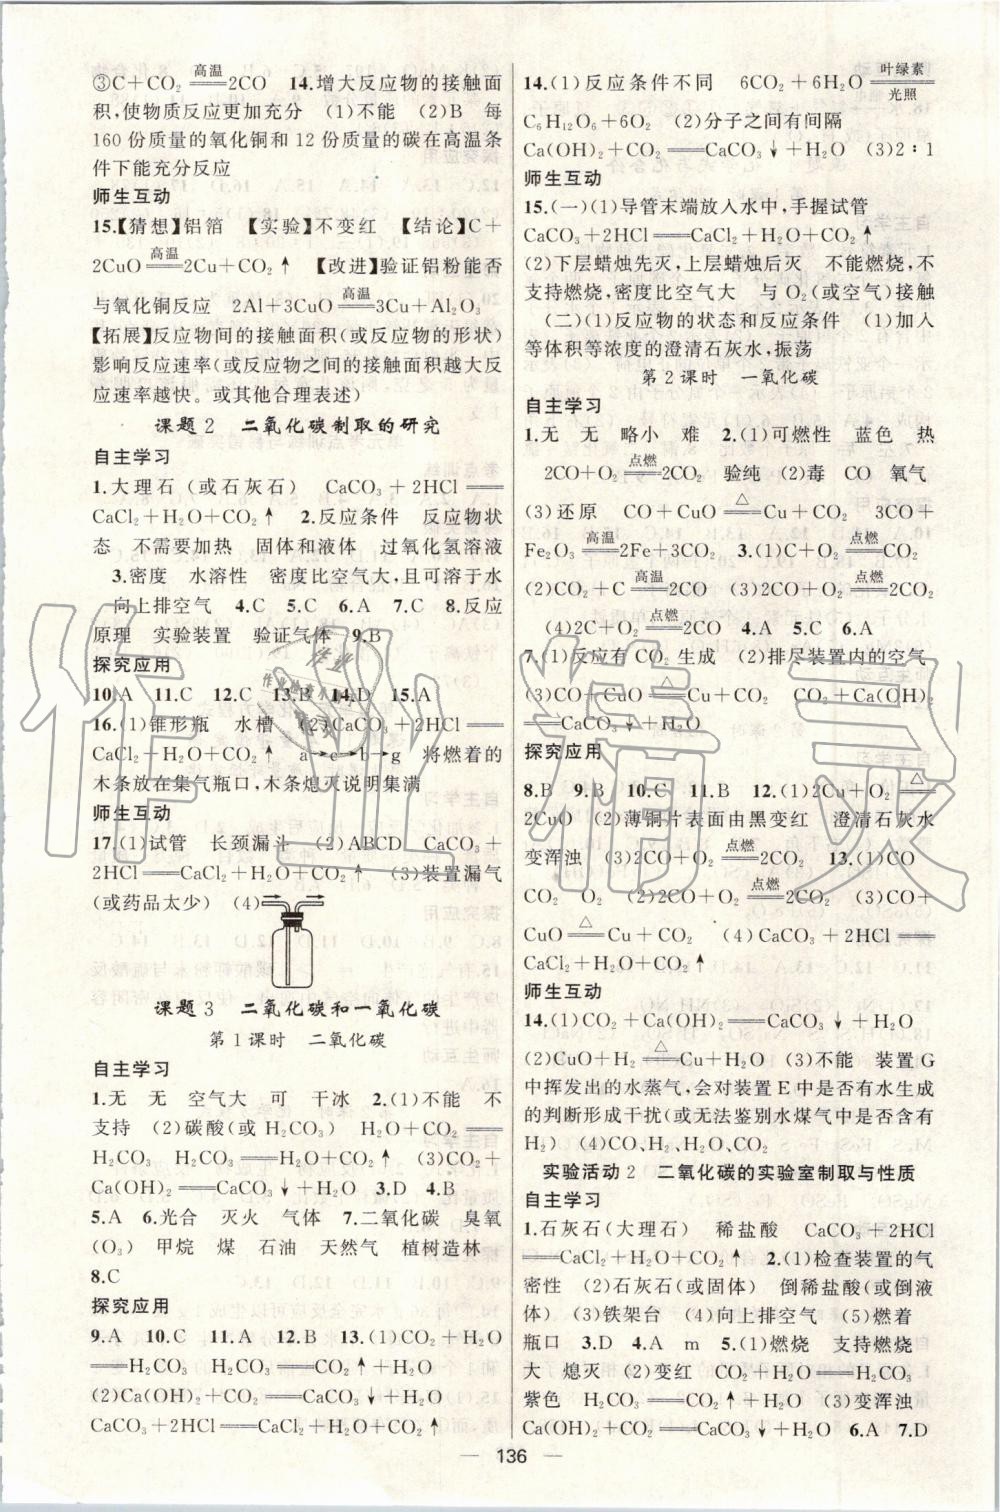 ③C＋CO₂ =高温= 2CO　14.增大反应物的接触面
积,使物质反应更加充分　(1)不能　(2)B　每
160 份质量的氧化铜和 12 份质量的碳在高温条
件下能充分反应
师生互动
15.【猜想】铝箔　【实验】不变红　【结论】C＋
2CuO =高温= 2Cu＋CO₂↑　【改进】验证铝粉能否
与氧化铜反应　2Al＋3CuO =高温= 3Cu＋Al₂O₃
【拓展】反应物间的接触面积(或反应物的形状)
影响反应速率(或反应物之间的接触面积越大反
应速率越快。或其他合理表述)
课题 2　二氧化碳制取的研究
自主学习
1.大理石(或石灰石)　CaCO₃＋2HCl ══
CaCl₂＋H₂O＋CO₂↑　2.反应条件　反应物状
态　不需要加热　固体和液体　过氧化氢溶液
3.密度　水溶性　密度比空气大,且可溶于水
向上排空气　4.C　5.C　6.A　7.C　8.反应
原理　实验装置　验证气体　9.B
探究应用
10.A　11.C　12.C　13.B　14.D　15.A
16.(1)锥形瓶　水槽　(2)CaCO₃＋2HCl ══
CaCl₂＋H₂O＋CO₂↑　a→e→b→g　将燃着的
木条放在集气瓶口,木条熄灭说明集满
师生互动
17.(1)试管　长颈漏斗　(2)ABCD　CaCO₃＋
2HCl ══ CaCl₂＋H₂O＋CO₂↑　(3)装置漏气
(或药品太少)　(4)
课题 3　二氧化碳和一氧化碳
第 1 课时　二氧化碳
自主学习
1.无　无　空气大　可　干冰　2.(1)不能　不
支持　(2)碳酸(或 H₂CO₃)　H₂O＋CO₂ ══
H₂CO₃　H₂CO₃ ══ H₂O＋CO₂↑　(3)CO₂＋
Ca(OH)₂ ══ CaCO₃↓＋H₂O　3.D　4.B
5.A　6.光合　灭火　气体　7.二氧化碳　臭氧
(O₃)　甲烷　煤　石油　天然气　植树造林
8.C
探究应用
9.A　10.C　11.A　12.B　13.(1)CO₂＋H₂O
══ H₂CO₃　H₂CO₃ ══ CO₂↑＋H₂O
(2)Ca(OH)₂＋CO₂ ══ CaCO₃↓＋H₂O
CaCO₃＋2HCl ══ CaCl₂＋H₂O＋CO₂↑
14.(1)反应条件不同　6CO₂＋6H₂O =叶绿素/光照=
C₆H₁₂O₆＋6O₂　(2)分子之间有间隔
Ca(OH)₂＋CO₂ ══ CaCO₃↓＋H₂O　(3)2∶1
师生互动
15.(一)(1)导管末端放入水中,手握试管
CaCO₃＋2HCl ══ CaCl₂＋H₂O＋CO₂↑
(2)下层蜡烛先灭,上层蜡烛后灭　不能燃烧,不
支持燃烧,密度比空气大　与 O₂(或空气)接触
(二)(1)反应物的状态和反应条件　(1)加入
等体积等浓度的澄清石灰水,振荡
第 2 课时　一氧化碳
自主学习
1.无　无　略小　难　2.(1)可燃性　蓝色　热
2CO＋O₂ =点燃= 2CO₂　验纯　(2)毒　CO　氧气
(3)还原　CO＋CuO =△= Cu＋CO₂　3CO＋
Fe₂O₃ =高温= 2Fe＋3CO₂　3.(1)C＋O₂ =点燃= CO₂
(2)CO₂＋C =高温= 2CO　(3)2CO＋O₂ =点燃= 2CO₂
(4)2C＋O₂ =点燃= 2CO　4.A　5.C　6.A
7.(1)反应有 CO₂ 生成　(2)排尽装置内的空气
(3)CO＋CuO =△= Cu＋CO₂　CO₂＋Ca(OH)₂
══ CaCO₃↓＋H₂O
探究应用
8.B　9.B　10.C　11.B　12.(1)2Cu＋O₂ =△=
2CuO　(2)薄铜片表面由黑变红　澄清石灰水
变浑浊　(3)2CO＋O₂ =点燃= 2CO₂　13.(1)CO
CO₂　O₂　(2)2C＋O₂ =点燃= 2CO₂　(3)CO＋
CuO =△= Cu＋CO₂　(4)CaCO₃＋2HCl ══
CaCl₂＋H₂O＋CO₂↑
师生互动
14.(1)CO₂＋Ca(OH)₂ ══ CaCO₃↓＋H₂O
(2)CuO＋H₂ =△= Cu＋H₂O　(3)不能　装置 G
中挥发出的水蒸气,会对装置 E 中是否有水生成
的判断形成干扰(或无法鉴别水煤气中是否含有
H₂)　(4)CO、H₂、H₂O、CO₂
实验活动 2　二氧化碳的实验室制取与性质
自主学习
1.石灰石(大理石)　稀盐酸　CaCO₃＋2HCl
══ CaCl₂＋H₂O＋CO₂↑　2.(1)检查装置的气
密性　(2)石灰石(或固体)　倒稀盐酸(或倒液
体)　(3)铁架台　(4)向上排空气　(5)燃着
瓶口　3.D　4.A　m　5.(1)燃烧　支持燃烧
大　熄灭　(2)变红　CO₂＋H₂O ══ H₂CO₃
紫色　H₂CO₃ ══ CO₂↑＋H₂O　(3)变浑浊
Ca(OH)₂＋CO₂ ══ CaCO₃↓＋H₂O　6.A　7.D
— 136 —
作业精灵